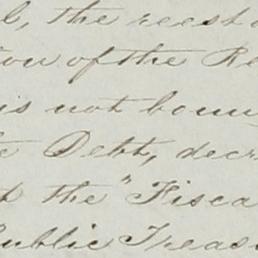 l, the reesta
tion of the Re
is not boun
Debt, decr
the "Fisca
Public Treas